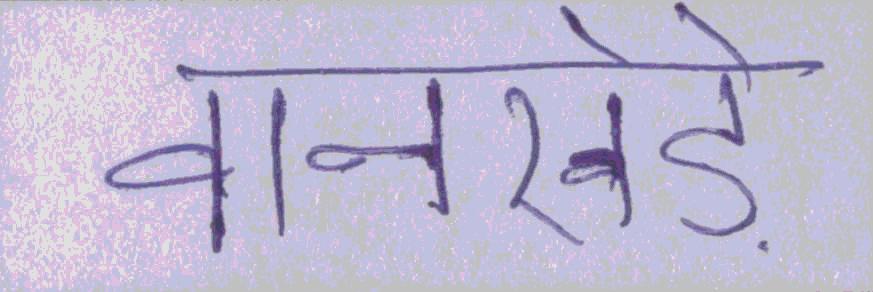 वानखेड़े